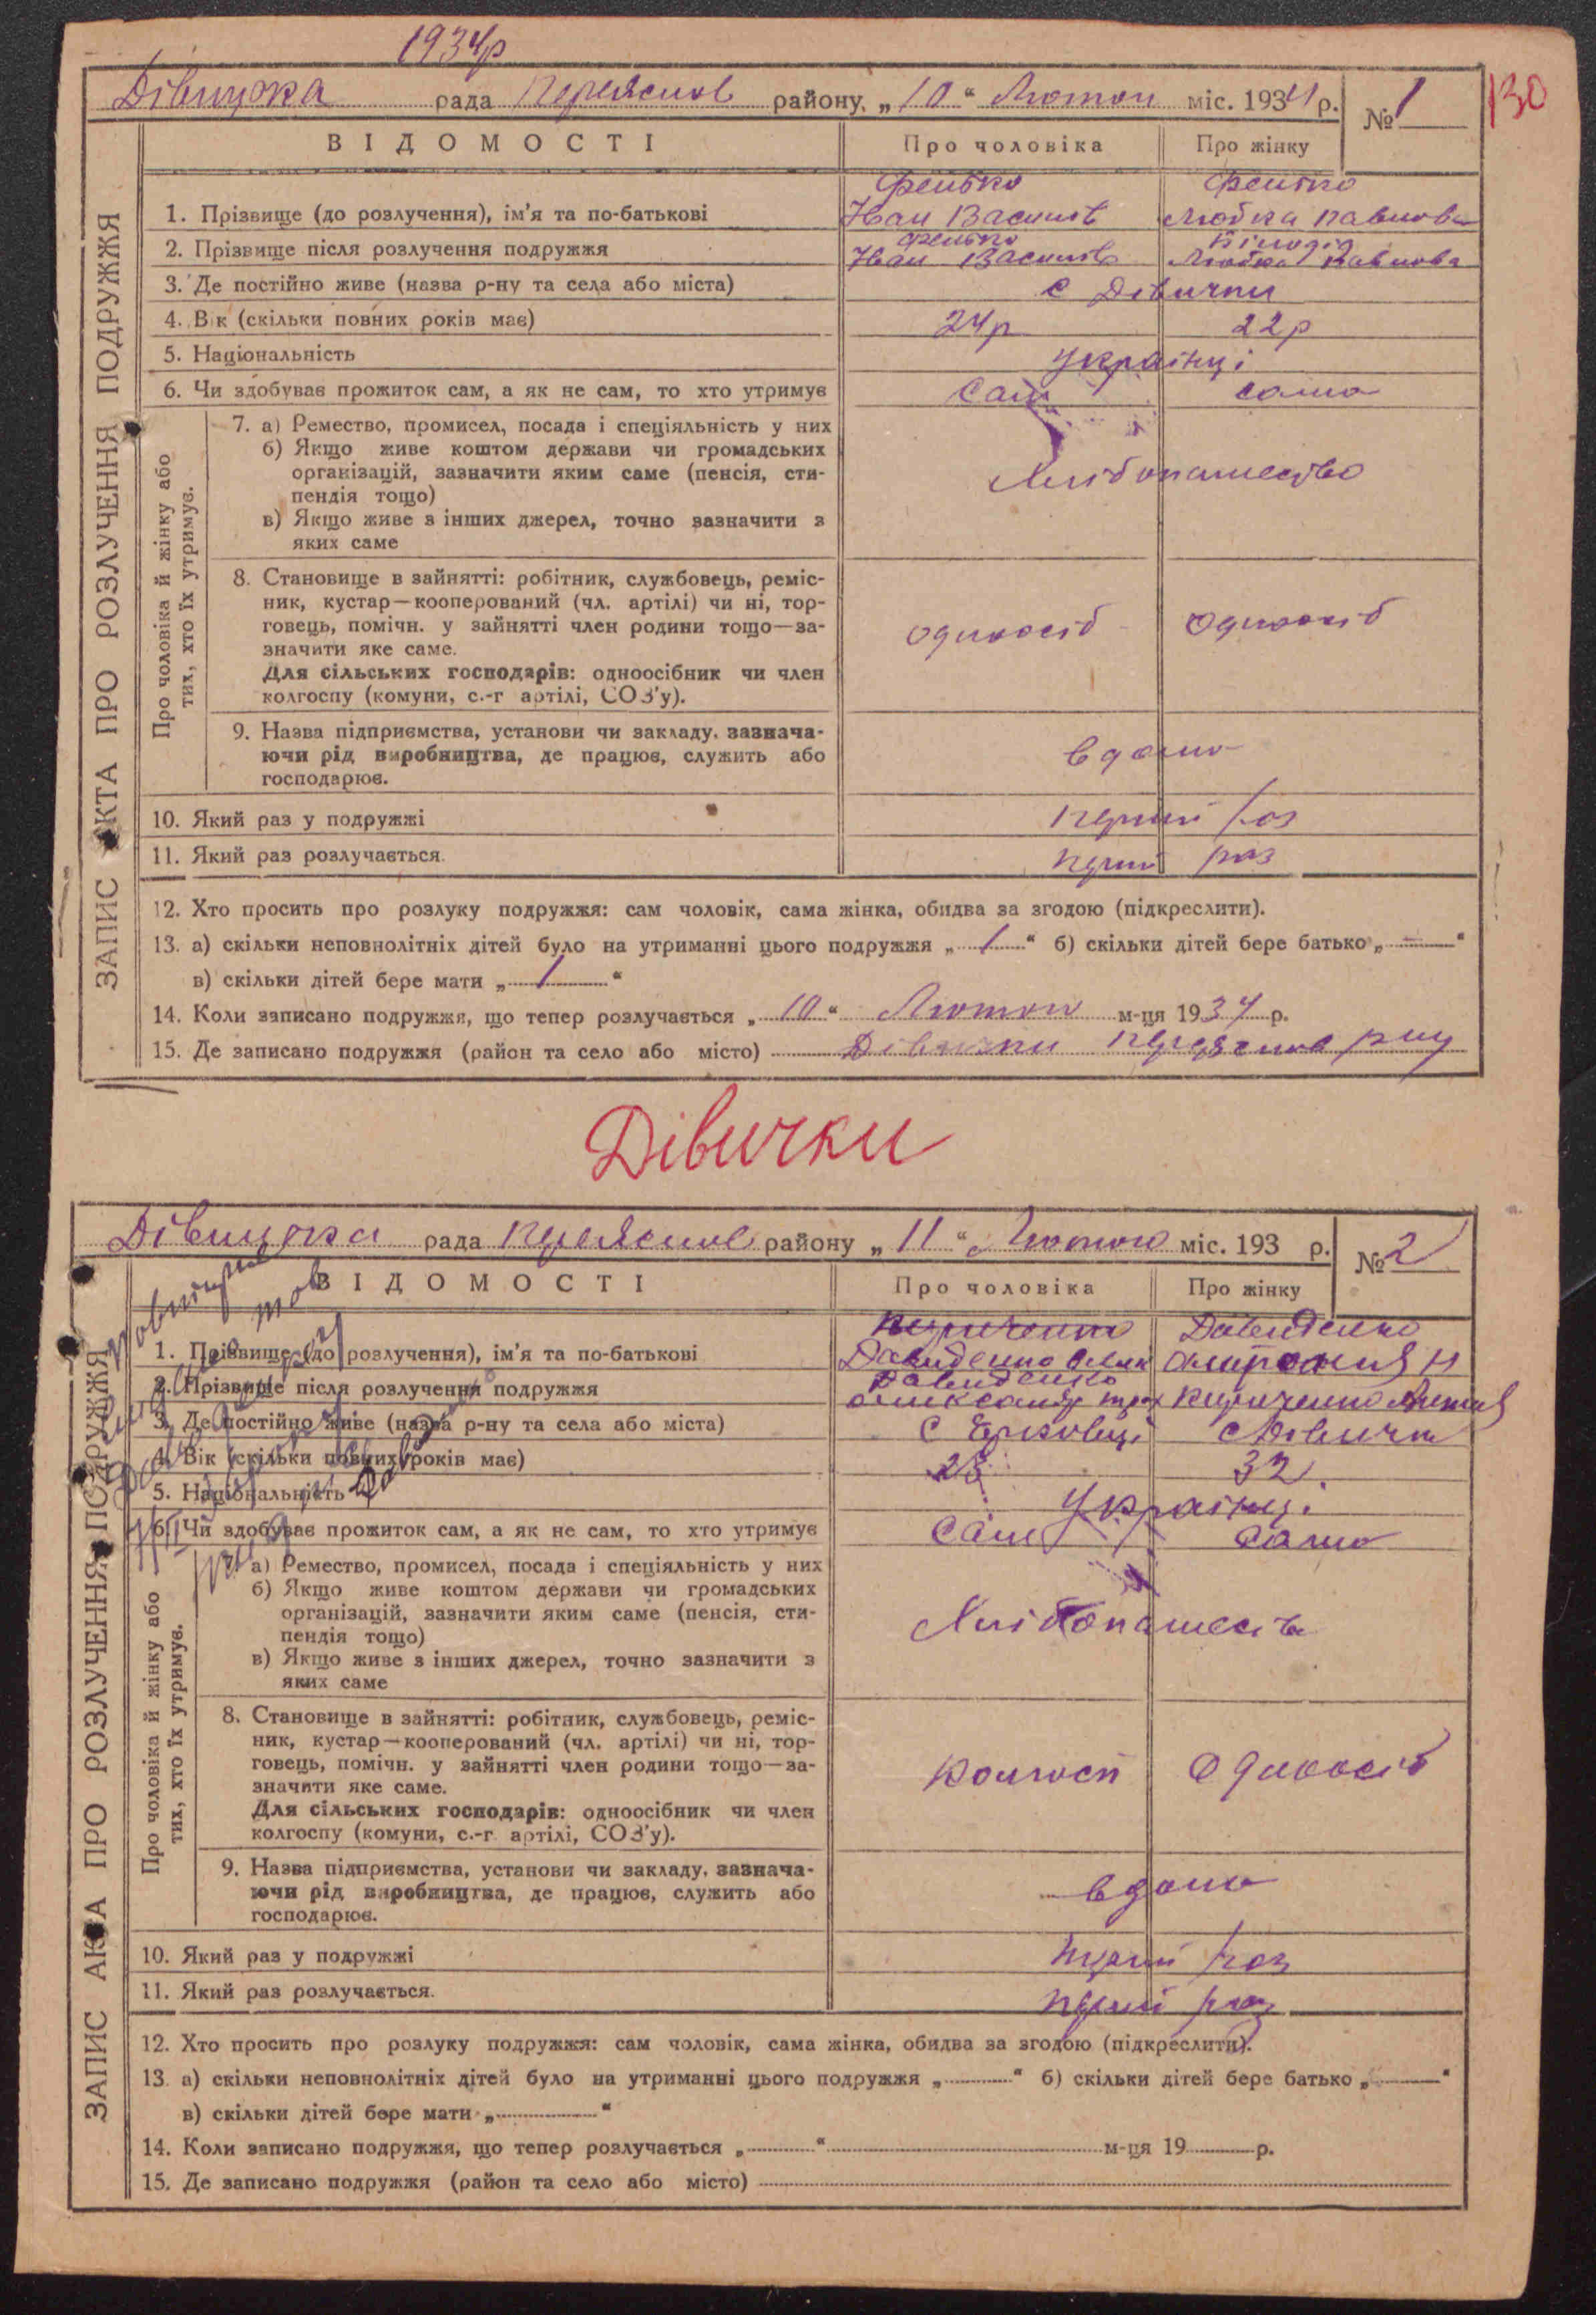 1934р
130
Дівицька рада Переяслов району, „10“ Лютого міс. 1934 р. № 1
ЗАПИС АКТА ПРО РОЗЛУЧЕННЯ ПОДРУЖЖЯ
ВІДОМОСТІ Про чоловіка Про жінку
Фенько Фенько
1. Прізвище (до розлучення), ім'я та по-батькові Иван Василів Любка Павлова
Фенько
2. Прізвище після розлучення подружжя Иван Василів Любка Павлова
3. Де постійно живе (назва р-ну та села або міста) с Дівички
4. Вік (скільки повних років має) 24р 22р
5. Національність Українці
6. Чи здобуває прожиток сам, а як не сам, то хто утримує Сам сама
Про чоловіка й жінку або тих, хто їх утримує.
7. а) Ремество, промисел, посада і спеціяльність у них
б) Якщо живе коштом держави чи громадських
організацій, зазначити яким саме (пенсія, сти-
пендія тощо)
в) Якщо живе з інших джерел, точно зазначити з
яких саме
Хлібопашество
8. Становище в зайнятті: робітник, службовець, реміс-
ник, кустар—кооперований (чл. артілі) чи ні, тор-
говець, помічн. у зайнятті член родини тощо—за-
значити яке саме.
Для сільських господарів: одноосібник чи член
колгоспу (комуни, с.-г артілі, СОЗ'у).
одноосіб одноосіб
9. Назва підприємства, установи чи закладу, зазнача-
ючи рід виробництва, де працює, служить або
господарює.
вдома
10. Який раз у подружжі перши раз
11. Який раз розлучається. перши раз
12. Хто просить про розлуку подружжя: сам чоловік, сама жінка, обидва за згодою (підкреслити).
13. а) скільки неповнолітніх дітей було на утриманні цього подружжя „ 1 “ б) скільки дітей бере батько „ — “
в) скільки дітей бере мати „ 1 “
14. Коли записано подружжя, що тепер розлучається „ 10 “ Лютого м-ця 1934 р.
15. Де записано подружжя (район та село або місто) Дівички Переяслов рну
Дівички
Дівицька рада Переяслов району „11“ Лютого міс. 193 р. № 2
ЗАПИС АКТА ПРО РОЗЛУЧЕННЯ ПОДРУЖЖЯ
ВІДОМОСТІ Про чоловіка Про жінку
Давиденко
1. Прізвище (до розлучення), ім'я та по-батькові Давиденко Олик
Давиденко
2. Прізвище після розлучення подружжя Олександр Кириченко
3. Де постійно живе (назва р-ну та села або міста) с Єрковці с Дівички
4. Вік (скільки повних років має) 28 32
5. Національність Українці
6. Чи здобуває прожиток сам, а як не сам, то хто утримує Сам Сама
Про чоловіка й жінку або тих, хто їх утримує.
а) Ремество, промисел, посада і спеціяльність у них
б) Якщо живе коштом держави чи громадських
організацій, зазначити яким саме (пенсія, сти-
пендія тощо)
в) Якщо живе з інших джерел, точно зазначити з
яких саме
Хлібопашеств
8. Становище в зайнятті: робітник, службовець, реміс-
ник, кустар—кооперований (чл. артілі) чи ні, тор-
говець, помічн. у зайнятті член родини тощо—за-
значити яке саме.
Для сільських господарів: одноосібник чи член
колгоспу (комуни, с.-г. артілі, СОЗ'у).
Колгосп Одноосіб
9. Назва підприємства, установи чи закладу, зазнача-
ючи рід виробництва, де працює, служить або
господарює.
вдома
10. Який раз у подружжі перши раз
11. Який раз розлучається. перши раз
12. Хто просить про розлуку подружжя: сам чоловік, сама жінка, обидва за згодою (підкреслити).
13. а) скільки неповнолітніх дітей було на утриманні цього подружжя „ “ б) скільки дітей бере батько „ “
в) скільки дітей бере мати „ “
14. Коли записано подружжя, що тепер розлучається „ “ м-ця 19 р.
15. Де записано подружжя (район та село або місто)